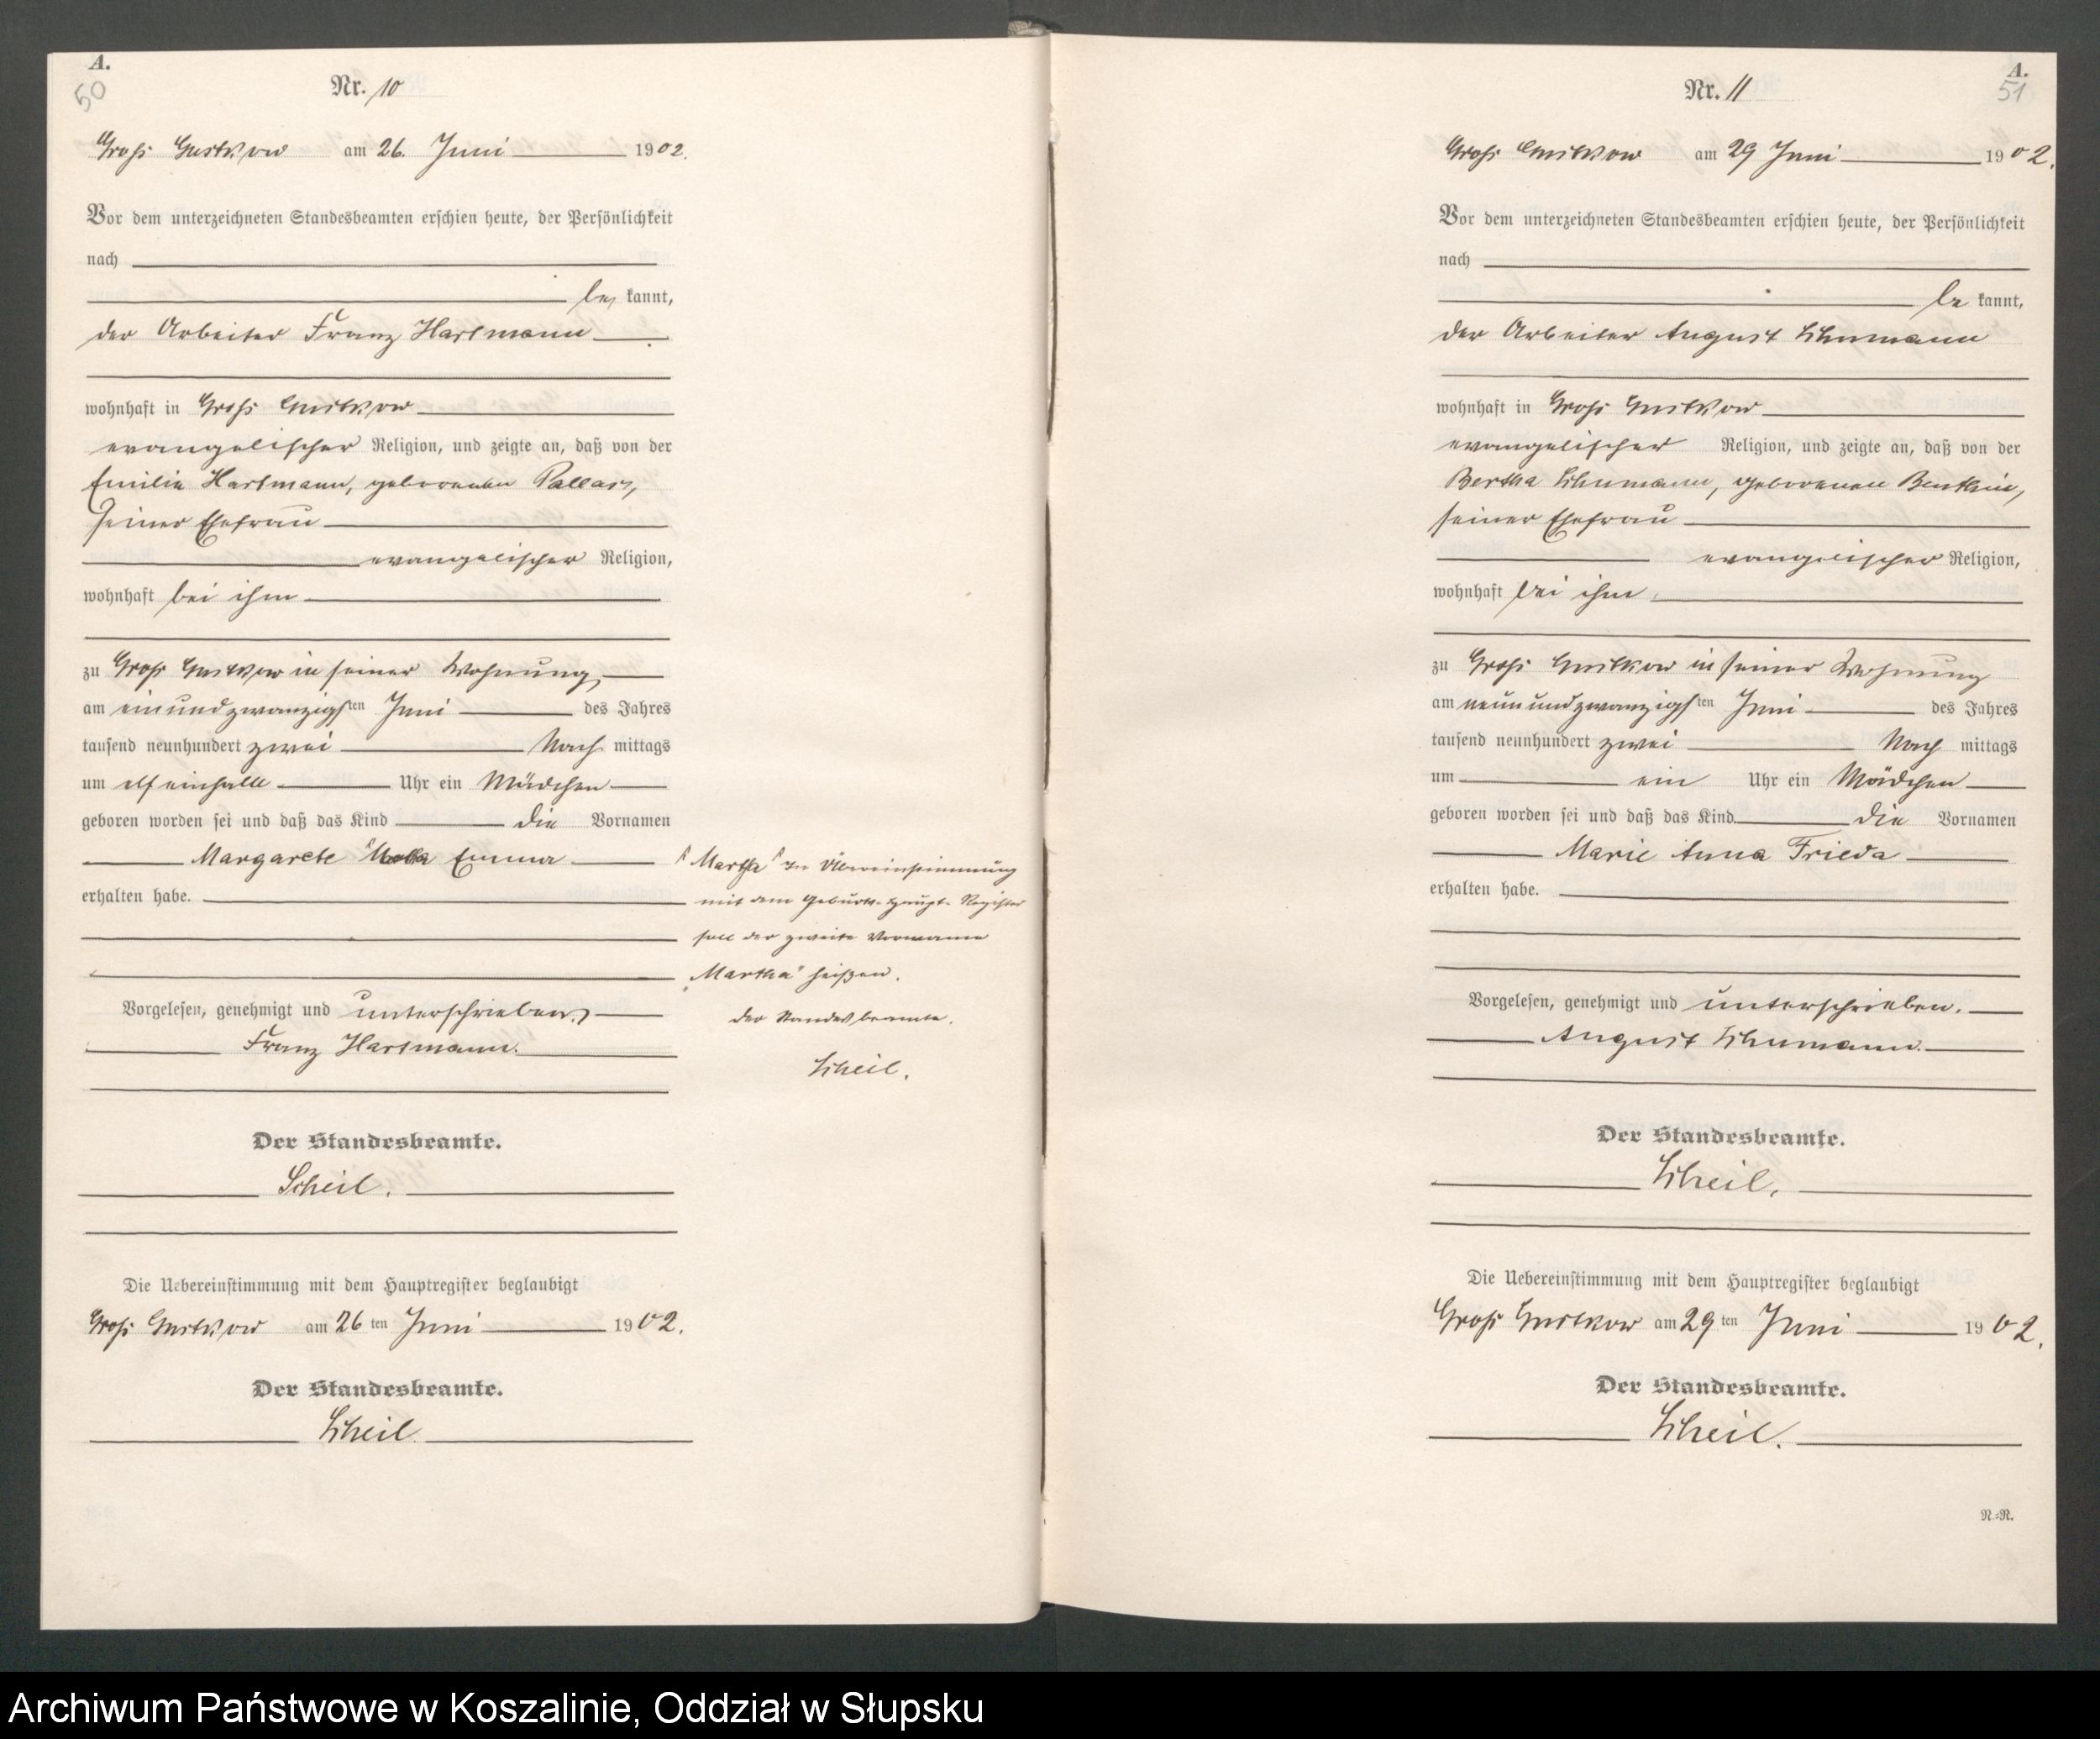 A.
50
Nr. 10
Groß Gustkow am 26. Juni 1902.
Vor dem unterzeichneten Standesbeamten erschien heute, der Persönlichkeit
nach
be kannt,
der Arbeiter Franz Hartmann
wohnhaft in Groß Gustkow
evangelischer Religion, und zeigte an, daß von der
Emilie Hartmann, geborenen Pallas,
seiner Ehefrau
evangelischer Religion,
wohnhaft bei ihm
zu Groß Gustkow in seiner Wohnung,
am einundzwanzigsten Juni des Jahres
tausend neunhundert zwei Nach mittags
um elf einhalb Uhr ein Mädchen
geboren worden sei und daß das Kind die Vornamen
Margarete Emma
erhalten habe.
Vorgelesen, genehmigt und unterschrieben.
Franz Hartmann.
Der Standesbeamte.
Scheil.
Die Uebereinstimmung mit dem Hauptregister beglaubigt
Groß Gustkow am 26 ten Juni 1902.
Der Standesbeamte.
Scheil
"Martha" In Übereinstimmung
mit dem Geburts-Haupt-Register
soll der zweite Vorname
"Martha" heißen.
Der Standesbeamte.
Scheil.
A.
51
Nr. 11
Groß Gustkow am 29 Juni 1902.
Vor dem unterzeichneten Standesbeamten erschien heute, der Persönlichkeit
nach
be kannt,
der Arbeiter August Schumann
wohnhaft in Groß Gustkow
evangelischer Religion, und zeigte an, daß von der
Bertha Schumann, geborenen
seiner Ehefrau
evangelischer Religion,
wohnhaft bei ihm
zu Groß Gustkow in seiner Wohnung
am neunundzwanzigsten Juni des Jahres
tausend neunhundert zwei Nach mittags
um ein Uhr ein Mädchen
geboren worden sei und daß das Kind die Vornamen
Marie Anna Frieda
erhalten habe.
Vorgelesen, genehmigt und unterschrieben.
August Schumann.
Der Standesbeamte.
Scheil.
Die Uebereinstimmung mit dem Hauptregister beglaubigt
Groß Gustkow am 29 ten Juni 1902.
Der Standesbeamte.
Scheil.
N.-R.
Archiwum Państwowe w Koszalinie, Oddział w Słupsku